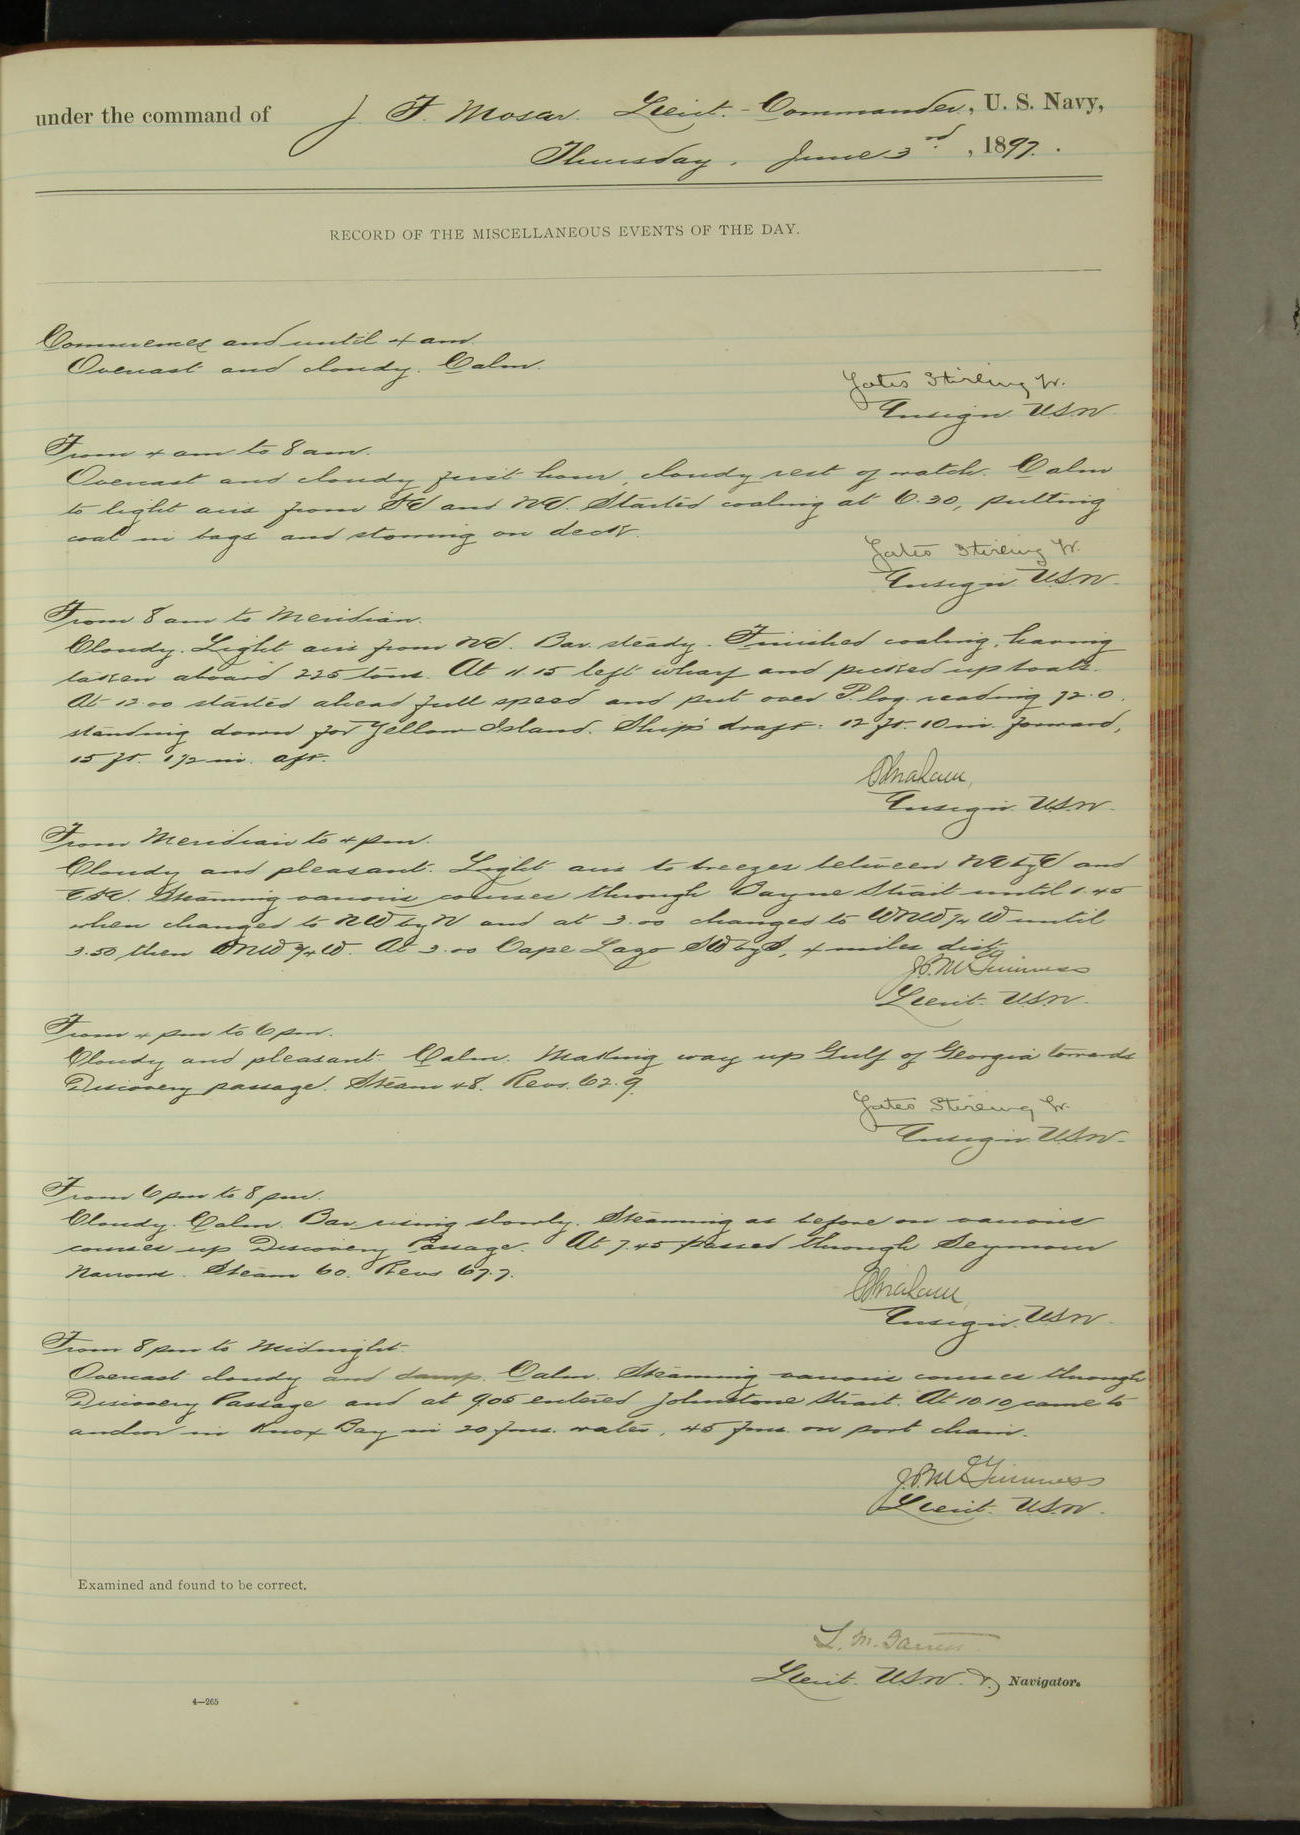 under the command of J. F. Moser. Lieut.-Commander, U. S. Navy,
Thursday, June 3rd, 1897.
RECORD OF THE MISCELLANEOUS EVENTS OF THE DAY.
Commences and until 4 am.
Overcast and cloudy. Calm.
Yates Stirling Jr.
Ensign. U.S.N.
From 4 am to 8 am.
Overcast and cloudy first hour, cloudy rest of watch. Calm
to light airs from and Nd. Started coaling at 6.30, putting
coal in bags and storing on deck.
Yates Stirling Jr.
Ensign U.S.N.
From 8 am to Meridian.
Cloudy. Light airs from Nd. Bar. steady. Finished coaling, having
taken aboard 225 tons. At 11.15 left wharf and picked up boats.
At 12.00 started ahead full speed and put over P. log. reading 72.0.
standing down for Yellow Island. Ship's draft: 12 ft. 10 in. forward,
15 ft. in. aft.
Ensign. U.S.N.
From Meridian to 4 pm.
Cloudy and pleasant. Light airs to breezes between and
Steaming various courses through Bayne Strait until 1.45
when changed to NW by N and at 3.00 changed to WNW 1/4 W until
3.50, then WNW 3/4 W. At 3.00 Cape Lazo SW by S, 4 miles dist.
J.B. McGinness
Lieut. U.S.N.
From 4 pm to 6 pm.
Cloudy and pleasant. Calm. Making way up Gulf of Georgia towards
Discovery passage. Steam 48. Revs. 62.9.
Yates Stirling Jr.
Ensign. U.S.N.
From 6 pm to 8 pm.
Cloudy. Calm. Bar rising slowly. Steaming as before on various
courses up Discovery Passage. At 7.45 passed through Seymour
Narrows. Steam 60. Revs 67.7.
Ensign. U.S.N.
From 8 pm to Midnight.
Overcast cloudy and damp. Calm. Steaming various courses through
Discovery Passage and at 9.05 entered Johnstone Strait. At 10.10 came to
anchor in Knox Bay in 20 fms. water, 45 fms. on port chain.
J.B. McGinness
Lieut. U.S.N.
Examined and found to be correct.
L. M. Garrett
Lieut. U.S.N. Navigator.
4—265